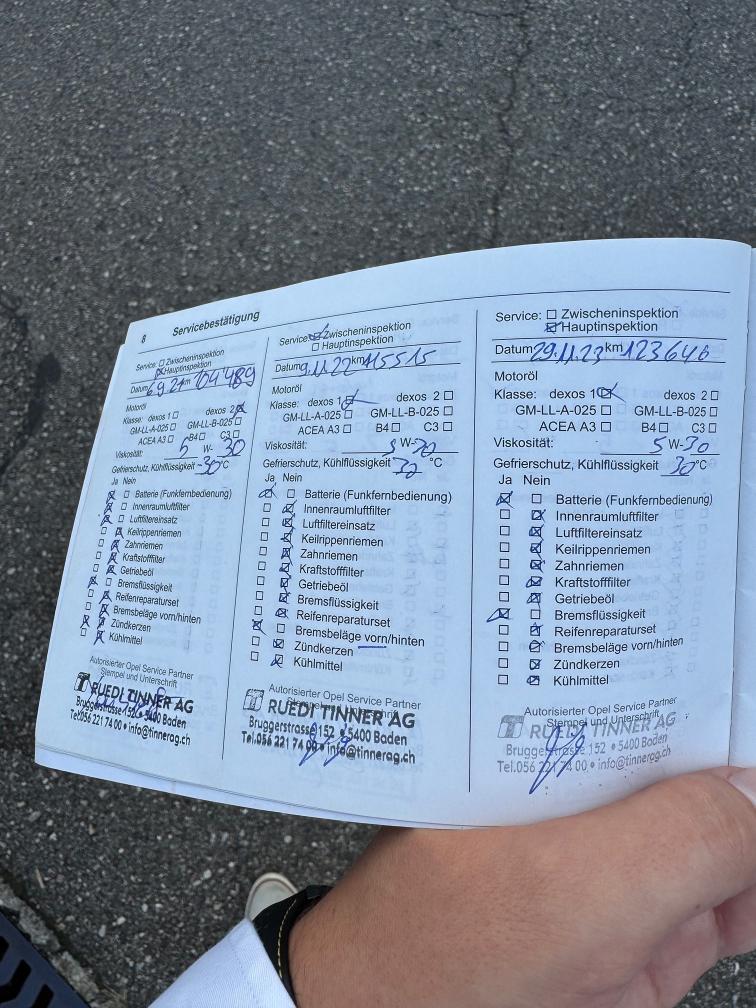 8 Servicebestätigung
Service: ☐ Zwischeninspektion
☒ Hauptinspektion
Datum 6 9 21 km 104489
Motoröl
Klasse: dexos 1 ☐ dexos 2 ☒
GM-LL-A-025 ☐ GM-LL-B-025 ☐
ACEA A3 ☐ B4 ☐ C3 ☐
Viskosität: 5 W- 30
Gefrierschutz, Kühlflüssigkeit -30 °C
Ja Nein
Batterie (Funkfernbedienung)
Innenraumluftfilter
Luftfiltereinsatz
Keilrippenriemen
Zahnriemen
Kraftstofffilter
Getriebeöl
Bremsflüssigkeit
Reifenreparaturset
Bremsbeläge vorn/hinten
Zündkerzen
Kühlmittel
Autorisierter Opel Service Partner
Stempel und Unterschrift
RUEDI TINNER AG
Bruggerstrasse 152 • 5400 Baden
Tel.056 221 74 00 • info@tinnerag.ch
Service: ☒ Zwischeninspektion
☐ Hauptinspektion
Datum 9.11.22 km 115515
Motoröl
Klasse: dexos 1 ☒ dexos 2 ☐
GM-LL-A-025 ☐ GM-LL-B-025 ☐
ACEA A3 ☐ B4 ☐ C3 ☐
Viskosität: 5 W-30
Gefrierschutz, Kühlflüssigkeit 30 °C
Ja Nein
Batterie (Funkfernbedienung)
Innenraumluftfilter
Luftfiltereinsatz
Keilrippenriemen
Zahnriemen
Kraftstofffilter
Getriebeöl
Bremsflüssigkeit
Reifenreparaturset
Bremsbeläge vorn/hinten
Zündkerzen
Kühlmittel
Autorisierter Opel Service Partner
Stempel und Unterschrift
RUEDI TINNER AG
Bruggerstrasse 152 • 5400 Baden
Tel.056 221 74 00 • info@tinnerag.ch
Service: ☐ Zwischeninspektion
☒ Hauptinspektion
Datum 29.11.23 km 123646
Motoröl
Klasse: dexos 1 ☒ dexos 2 ☐
GM-LL-A-025 ☐ GM-LL-B-025 ☐
ACEA A3 ☐ B4 ☐ C3 ☐
Viskosität: 5 W-30
Gefrierschutz, Kühlflüssigkeit 30 °C
Ja Nein
☒ ☐ Batterie (Funkfernbedienung)
☐ ☒ Innenraumluftfilter
☐ ☒ Luftfiltereinsatz
☐ ☒ Keilrippenriemen
☐ ☒ Zahnriemen
☐ ☒ Kraftstofffilter
☐ ☒ Getriebeöl
☒ ☐ Bremsflüssigkeit
☐ ☒ Reifenreparaturset
☐ ☒ Bremsbeläge vorn/hinten
☐ ☒ Zündkerzen
☐ ☒ Kühlmittel
Autorisierter Opel Service Partner
Stempel und Unterschrift
RUEDI TINNER AG
Bruggerstrasse 152 • 5400 Baden
Tel.056 221 74 00 • info@tinnerag.ch